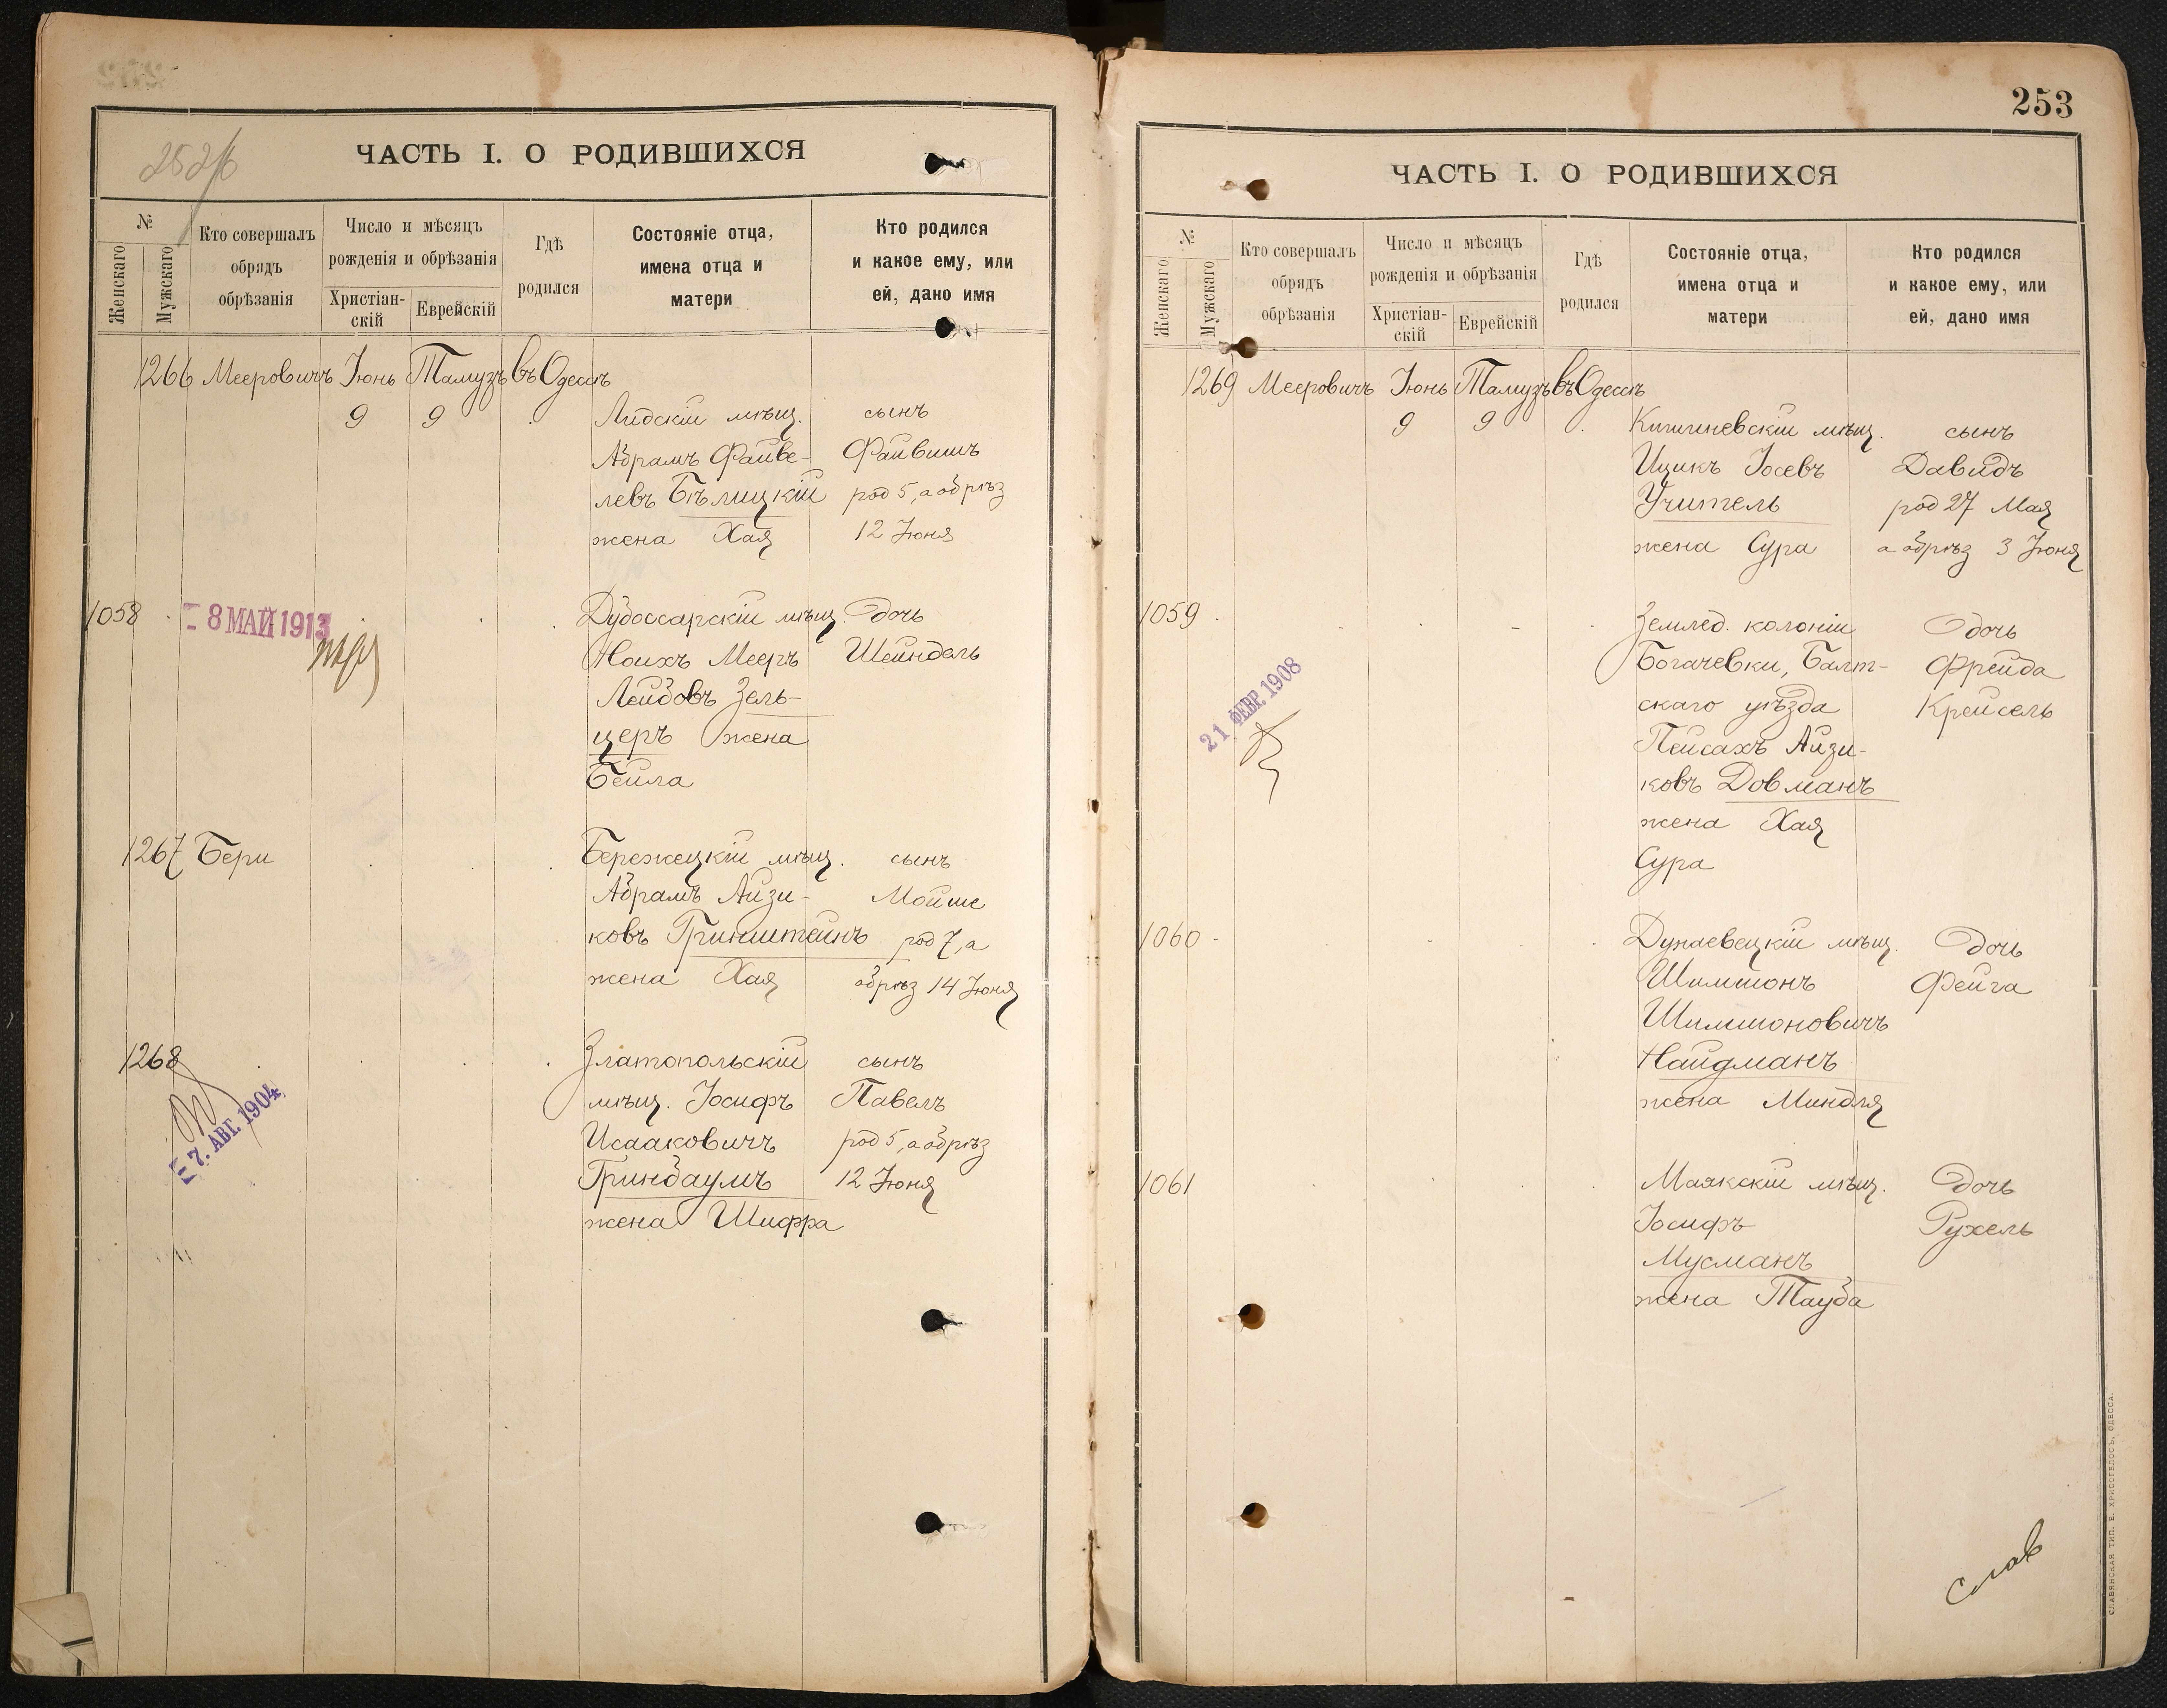 252/б
ЧАСТЬ I. О РОДИВШИХСЯ
№
Женскаго
Мужскаго
Кто совершалъ
обрядъ
обрѣзанія
Число и мѣсяцъ
рожденія и обрѣзанія
Христіан-
скій
Еврейскій
Гдѣ
родился
Состояніе отца,
имена отца и
матери
Кто родился
и какое ему, или
ей, дано имя
1266 Мееровичъ Іюнь Тамузъ въ Одессѣ
9 9 Лидскій мѣщ. сынъ
Абрамъ Файве- Файвишъ
левъ Бѣлицкій род 5, а обрѣз
жена Хая 12 Іюня
1058 Дубоссарскій мѣщ. дочь
8 МАЙ 1913
Ноихъ Мееръ Шейндель
Лейбовъ Зель-
церъ жена
Бейла
1267 Бери Бережецкій мѣщ. сынъ
Абрамъ Айзи- Мойше
ковъ Гринштейнъ род 7, а
жена Хая обрѣз 14 Іюня
1268 Златопольскій сынъ
мѣщ. Іосифъ Павелъ
7. АВГ. 1904
Исааковичъ род 5, а обрѣз
Гринбаумъ 12 Іюня
жена Шифра
253
ЧАСТЬ I. О РОДИВШИХСЯ
№
Женскаго
Мужскаго
Кто совершалъ
обрядъ
обрѣзанія
Число и мѣсяцъ
рожденія и обрѣзанія
Христіан-
скій
Еврейскій
Гдѣ
родился
Состояніе отца,
имена отца и
матери
Кто родился
и какое ему, или
ей, дано имя
1269 Мееровичъ Іюнь Тамузъ въ Одессѣ
9 9 Кишиневскій мѣщ. сынъ
Ицикъ Іосевъ Давидъ
Учитель род 27 Мая
жена Сура а обрѣз 3 Іюня
1059 Землед. колоніи дочь
Богачевки, Балт- Фрейда
скаго уѣзда Крейсель
21 ФЕВР. 1908
Пейсахъ Айзи-
ковъ Довманъ
жена Хая
Сура
1060 Дунаевецкій мѣщ. дочь
Шимшонъ Фейга
Шимшоновичъ
Найдманъ
жена Миндля
1061 Маякскій мѣщ. дочь
Іосифъ Рухель
Мусманъ
жена Тауба
слав
СЛАВЯНСКАЯ ТИП. Е. ХРИСОГЕЛОСЪ, ОДЕССА.